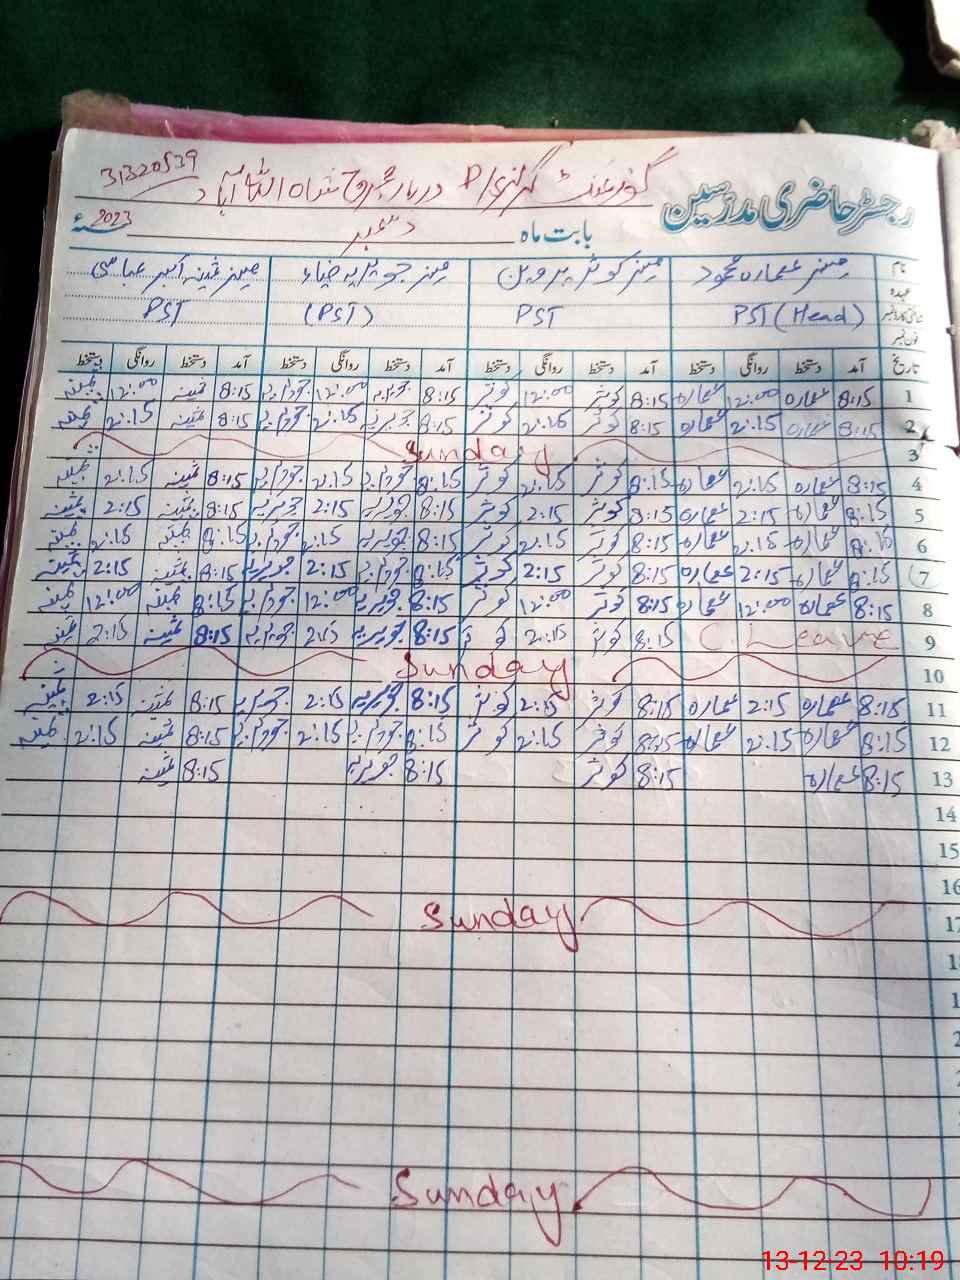 رجسٹر حاضری مدرسین
گورنمنٹ گرلز P/S دربار شاہ اللہ آباد 31320539
بابت ماہ دسمبر 2023ء
نام مسز عمارہ محمود مسز کوثر پروین مسز جویریہ ضیاء مسز ثمینہ اکبر عباسی
عہدہ PST (Head) PST (PST) PST
فون نمبر
تاریخ آمد دستخط روانگی دستخط آمد دستخط روانگی دستخط آمد دستخط روانگی دستخط آمد دستخط روانگی دستخط
1 8:15 عمارہ 12:00 عمارہ 8:15 کوثر 12:00 کوثر 8:15 جویریہ 12:00 جویریہ 8:15 ثمینہ 12:00 ثمینہ
2 8:15 عمارہ 2:15 عمارہ 8:15 کوثر 2:15 کوثر 8:15 جویریہ 2:15 جویریہ 8:15 ثمینہ 2:15 ثمینہ
3 Sunday
4 8:15 عمارہ 2:15 عمارہ 8:15 کوثر 2:15 کوثر 8:15 جویریہ 2:15 جویریہ 8:15 ثمینہ 2:15 ثمینہ
5 8:15 عمارہ 2:15 عمارہ 8:15 کوثر 2:15 کوثر 8:15 جویریہ 2:15 جویریہ 8:15 ثمینہ 2:15 ثمینہ
6 8:15 عمارہ 2:15 عمارہ 8:15 کوثر 2:15 کوثر 8:15 جویریہ 2:15 جویریہ 8:15 ثمینہ 2:15 ثمینہ
7 8:15 عمارہ 2:15 عمارہ 8:15 کوثر 2:15 کوثر 8:15 جویریہ 2:15 جویریہ 8:15 ثمینہ 2:15 ثمینہ
8 8:15 عمارہ 12:00 عمارہ 8:15 کوثر 12:00 کوثر 8:15 جویریہ 12:00 جویریہ 8:15 ثمینہ 12:00 ثمینہ
9 C. Leave 8:15 کوثر 2:15 کوثر 8:15 جویریہ 2:15 جویریہ 8:15 ثمینہ 2:15 ثمینہ
10 Sunday
11 8:15 عمارہ 2:15 عمارہ 8:15 کوثر 2:15 کوثر 8:15 جویریہ 2:15 جویریہ 8:15 ثمینہ 2:15 ثمینہ
12 8:15 عمارہ 2:15 عمارہ 8:15 کوثر 2:15 کوثر 8:15 جویریہ 2:15 جویریہ 8:15 ثمینہ 2:15 ثمینہ
13 8:15 عمارہ 8:15 کوثر 8:15 جویریہ 8:15 ثمینہ
14
15
16
17 Sunday
Sunday
13-12-23 10:19